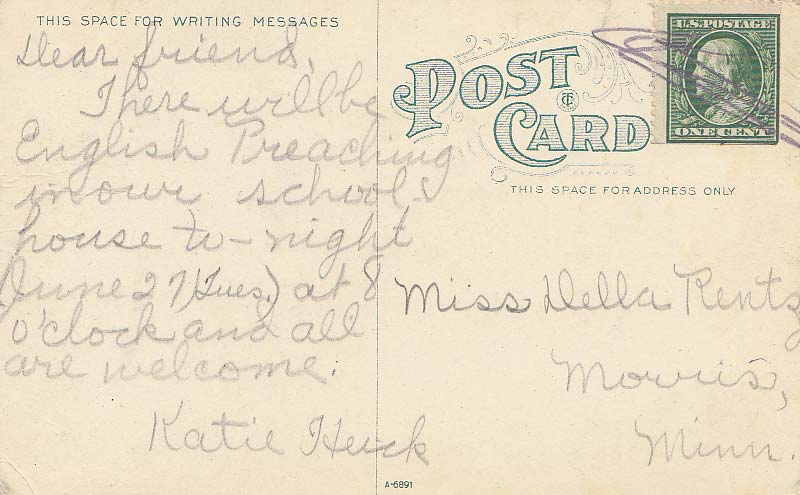 THIS SPACE FOR WRITING MESSAGES
Dear friend,
There will be
English Preaching
in our school
house to-night
June 27 (Tues.) at 8
o'clock and all
are welcome.
Katie Heick
POST
CARD
THIS SPACE FOR ADDRESS ONLY
U.S. POSTAGE
ONE CENT
Miss Della Rentz
Morris,
Minn.
A-6891